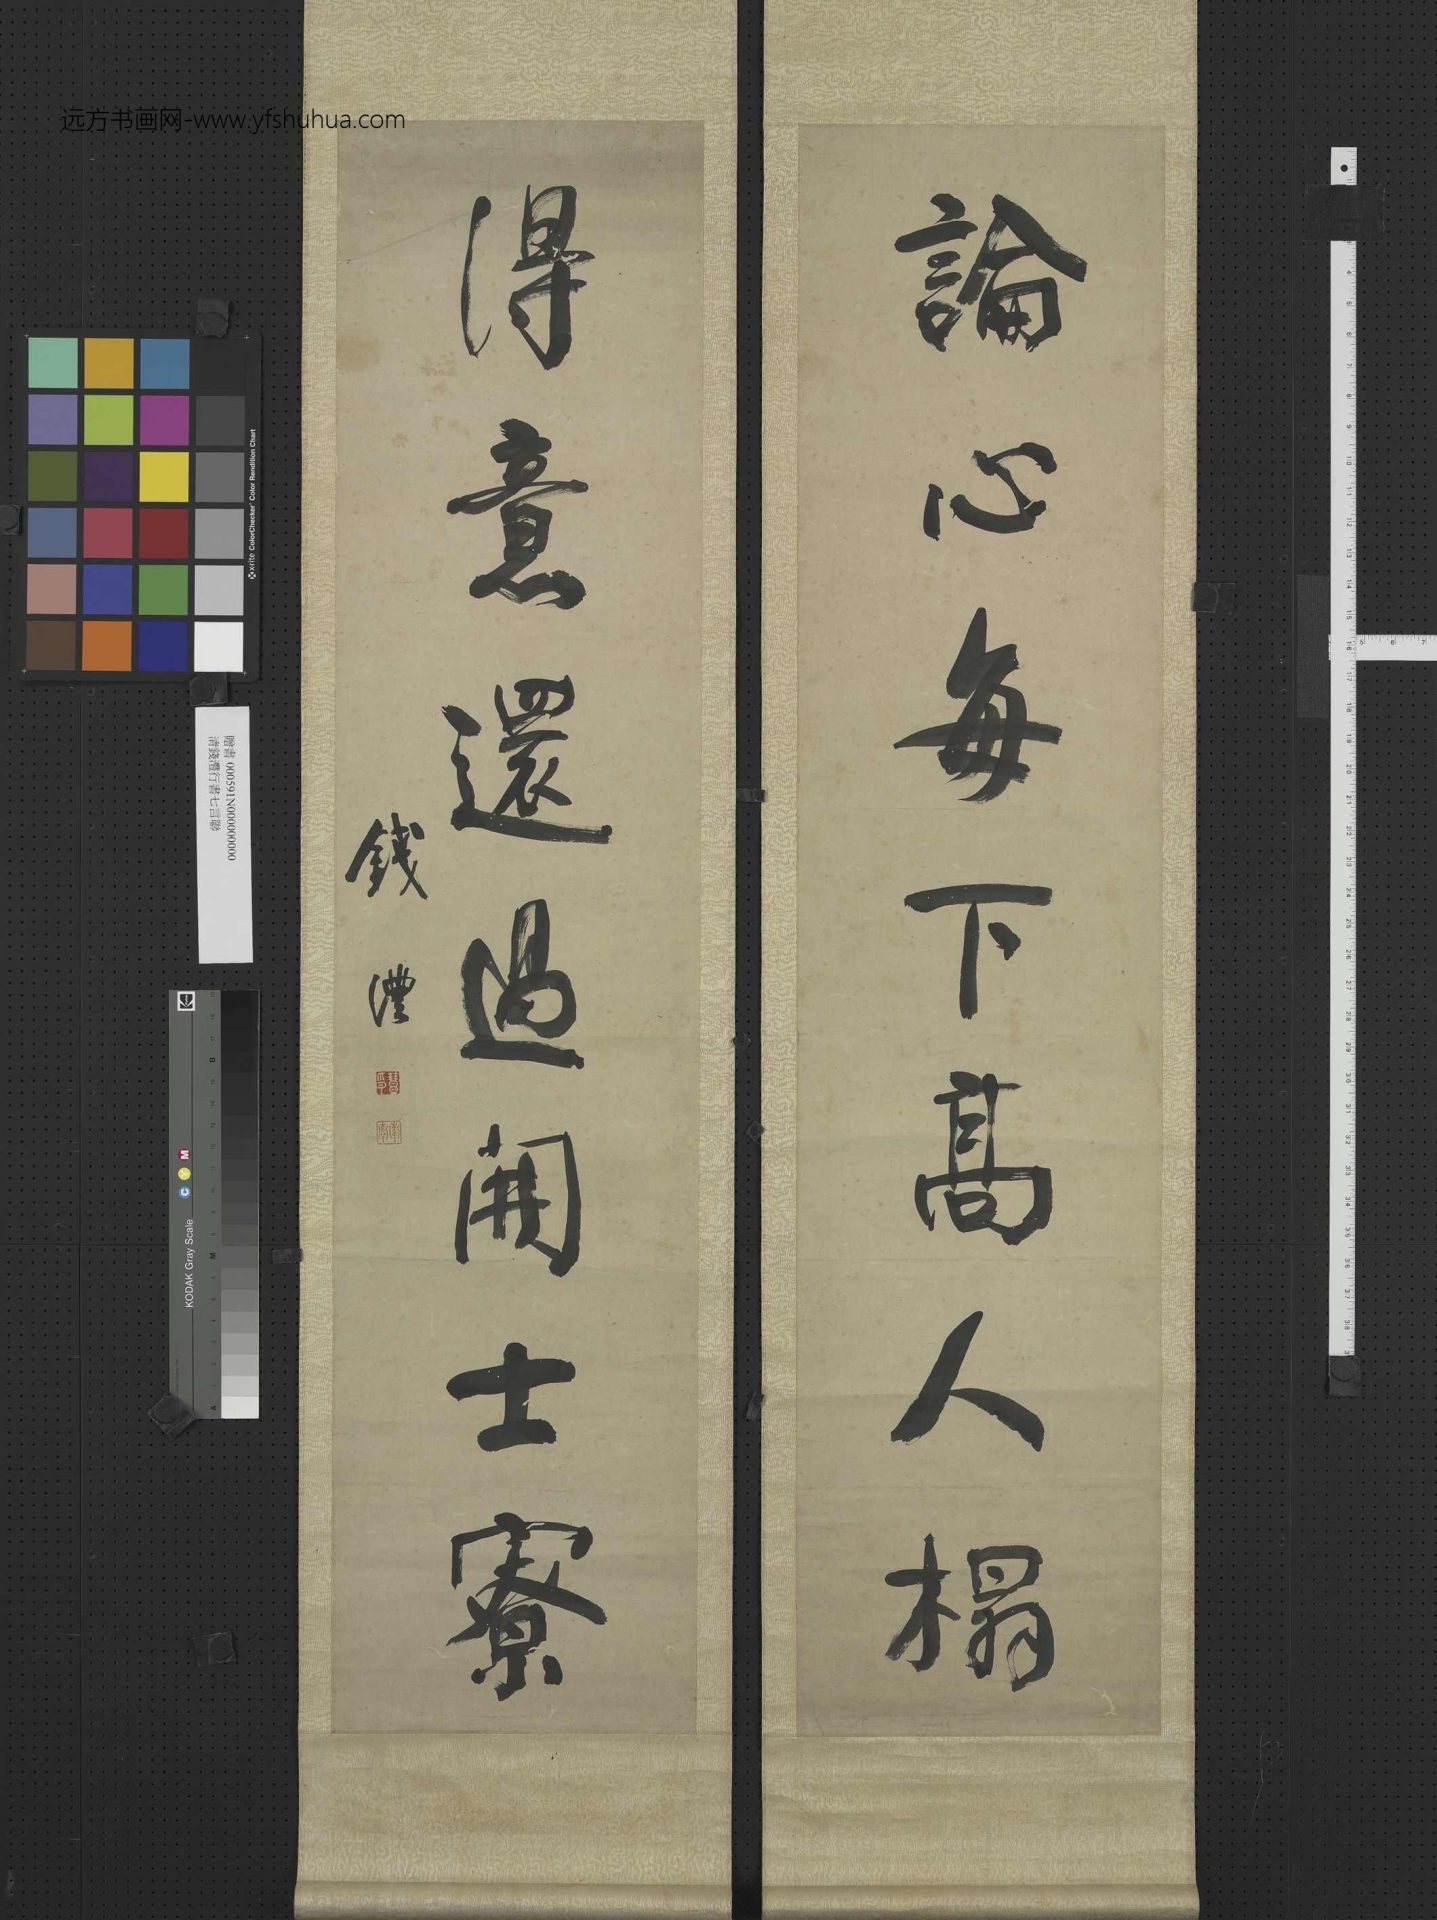 远方书画网-www.yfshuhua.com
論心每下高人榻
得意還過開士寮
錢灃
贈書 000591N000000000
清錢灃行書七言聯
x-rite ColorChecker Color Rendition Chart
KODAK Gray Scale
C Y M